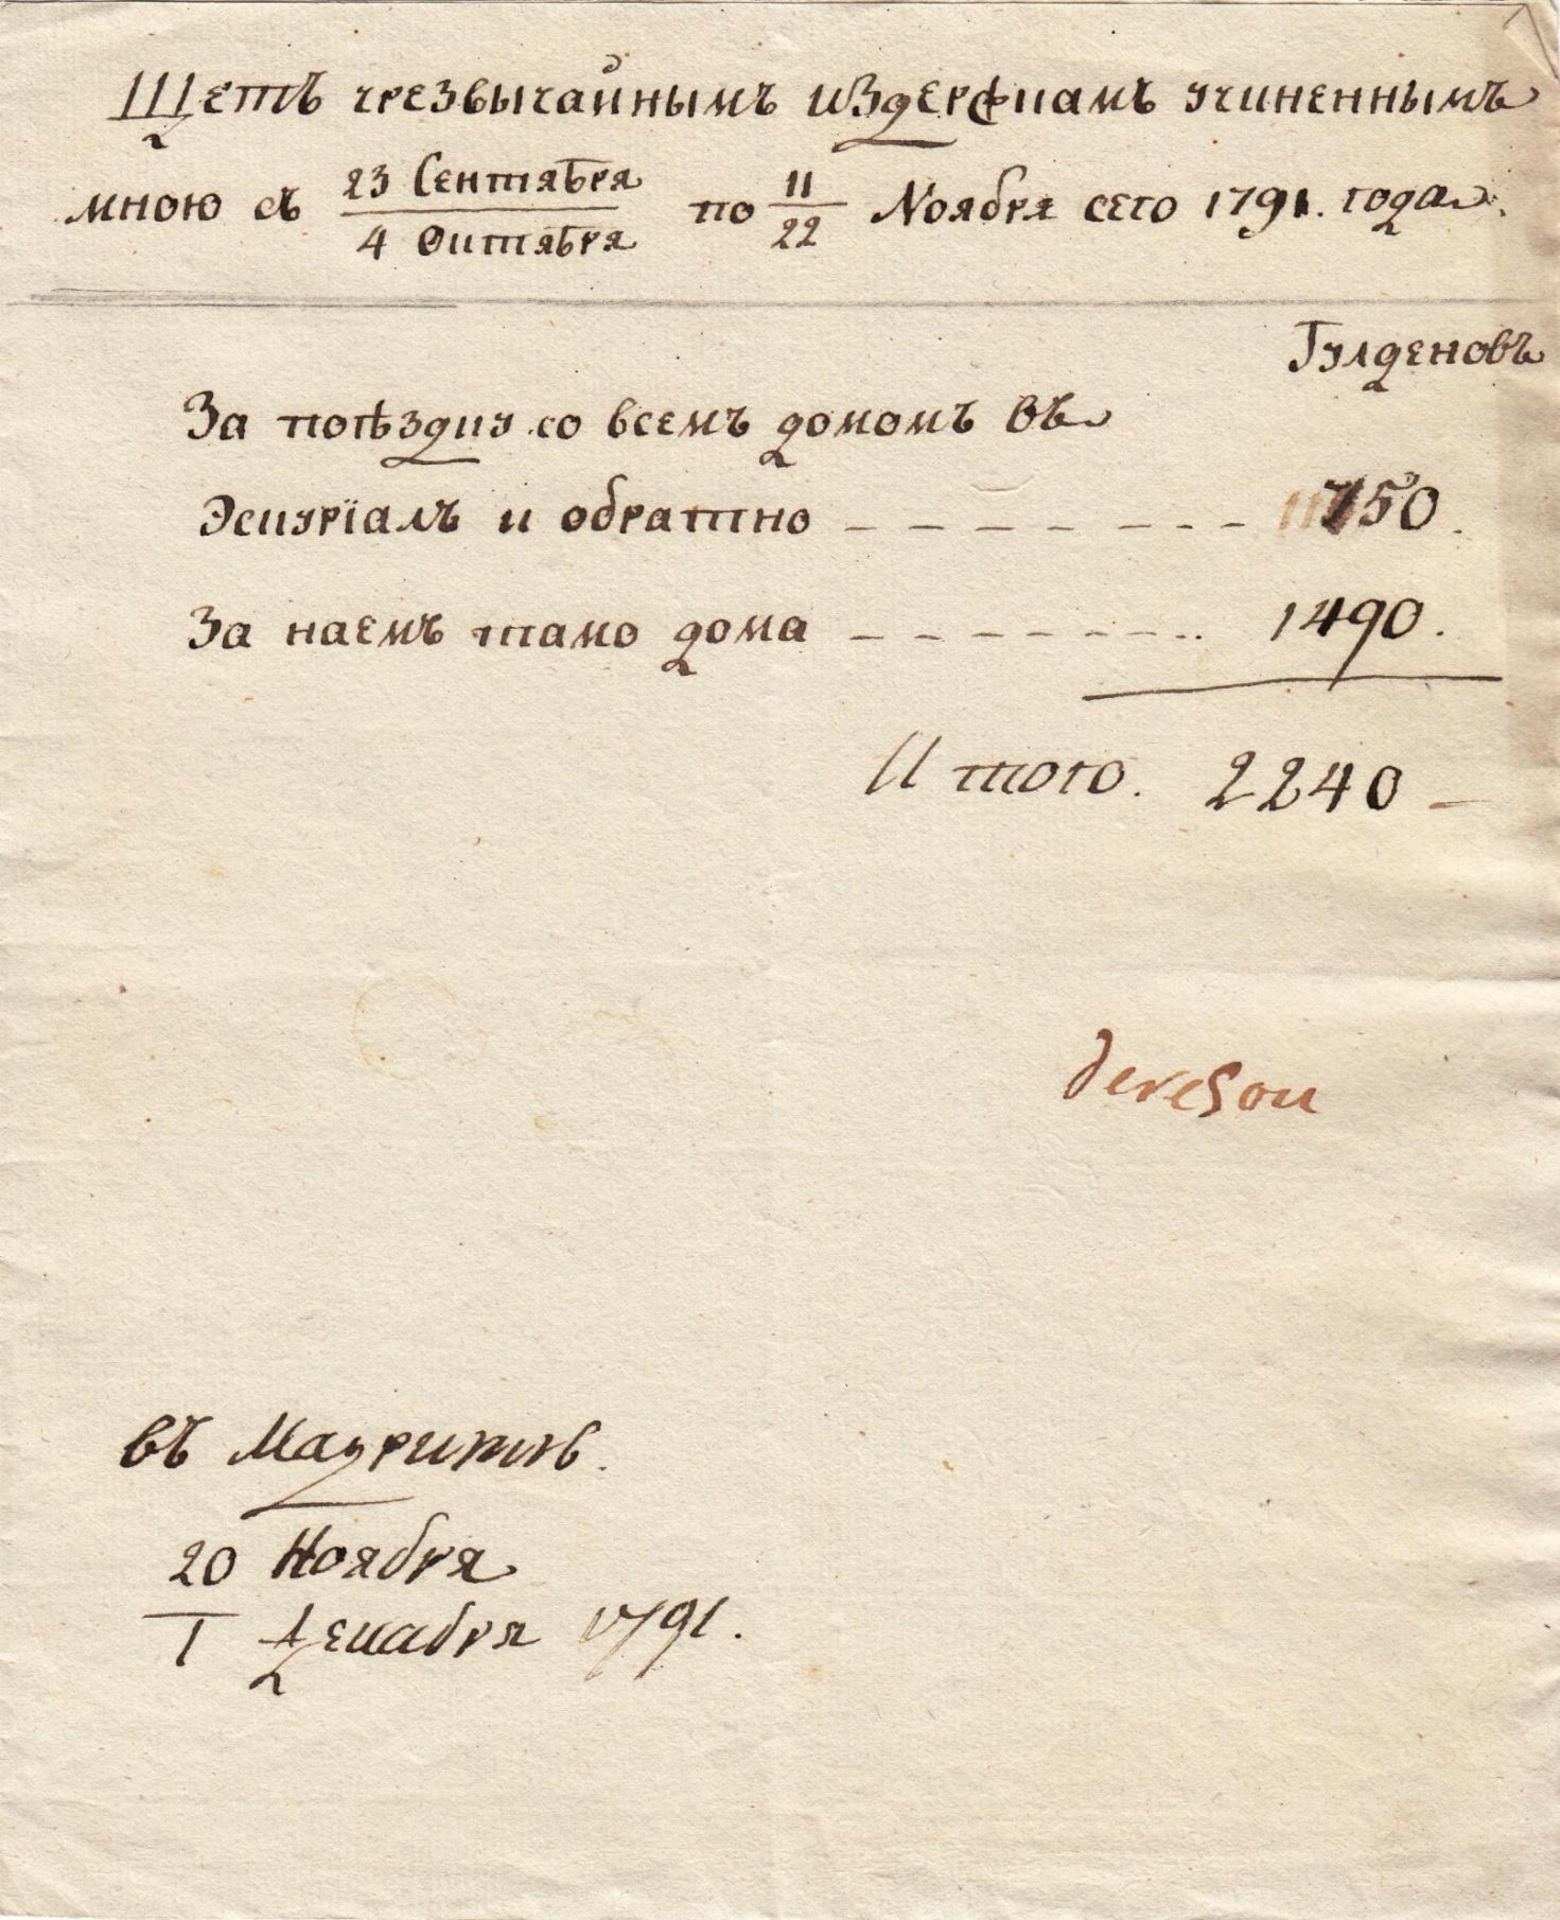 Щетъ чрезвычайнымъ издержкамъ учиненнымъ
мною съ 23 Сентября / 4 Октября по 11/22 Ноября сего 1791. года.
Гулденовъ
За поѣздку со всемъ домомъ въ
Эскурїалъ и обратно – – – – – – – – 750.
За наемъ тамо дома – – – – – – – .. 1490.
Итого. 2240 –
въ Мадритѣ.
20 Ноября
1 Декабря 1791.